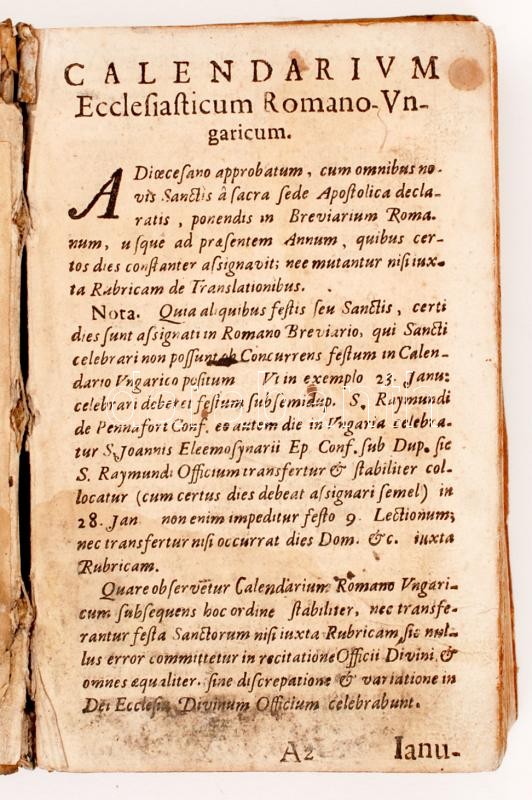 CALENDARIVM
Ecclesiasticum Romano-Vn-
garicum.
A Diœcesano approbatum, cum omnibus no-
vis Sanctis â sacra sede Apostolica decla-
ratis, ponendis in Breviarium Roma-
num, usque ad præsentem Annum, quibus cer-
tos dies constanter assignavit; nec mutantur nisi iux-
ta Rubricam de Translationibus.
Nota. Quia aliquibus festis seu Sanctis, certi
dies sunt assignati in Romano Breviario, qui Sancti
celebrari non possunt ob Concurrens festum in Calen-
dario Vngarico positum Vt in exemplo 23. Janu:
celebrari deberet festum sub semidup. S. Raymundi
de Pennafort Conf. eo autem die in Vngaria celebra-
tur S. Joannis Eleemosynarii Ep Conf. sub Dup. sic
S. Raymundi Officium transfertur & stabiliter col-
locatur (cum certus dies debeat assignari semel) in
28. Jan non enim impeditur festo 9. Lectionum;
nec transfertur nisi occurrat dies Dom. &c. iuxta
Rubricam.
Quare observetur Calendarium Romano Vngari-
cum subsequens hoc ordine stabiliter, nec transfe-
rantur festa Sanctorum nisi iuxta Rubricam, sic nul-
lus error committetur in recitatione Officii Divini. &
omnes æqualiter. sine discrepatione & variatione in
Dei Ecclesia Divinum Officium celebrabunt.
A2 Ianu-